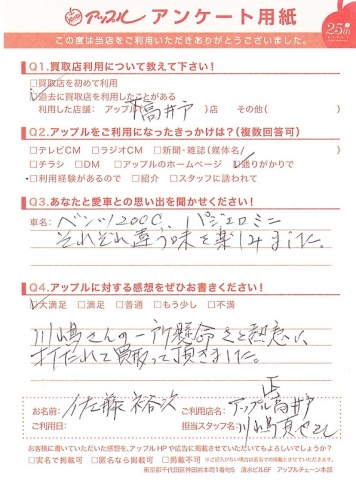 アップル アンケート用紙
25th
この度は当店をご利用いただきありがとうございました。
Q1.買取店利用について教えて下さい!
□買取店を初めて利用
□過去に買取店を利用したことがある
利用した店舗: アップル( 下高井戸 )店 その他( )
Q2.アップルをご利用になったきっかけは?(複数回答可)
□テレビCM □ラジオCM □新聞・雑誌(媒体名/ )
□チラシ □DM □アップルのホームページ □通りがかりで
□利用経験があるので □紹介 □スタッフに誘われて
Q3.あなたと愛車との思い出を聞かせください!
車名: ベンツ200C、パジェロミニ
それぞれ違う味を楽しみました。
Q4.アップルに対する感想をぜひお書きください!
□大満足 □満足 □普通 □もう少し □不満
川嶋さんの一所懸命さと熱意に
打たれて買取って頂きました。
お名前: 佐藤 裕次
ご利用店名: アップル下高井戸店
ご利用日:
担当スタッフ名: 川嶋
お客様に書いていただいた感想を、アップルHPや広告に掲載させていただいてもよろしいでしょうか?
□実名で掲載可 □匿名なら掲載可 □掲載不可 ※ご記入がない場合は匿名での掲載とさせていただきます。
東京都千代田区神田岩本町1番地5 清水ビル6F アップルチェーン本部